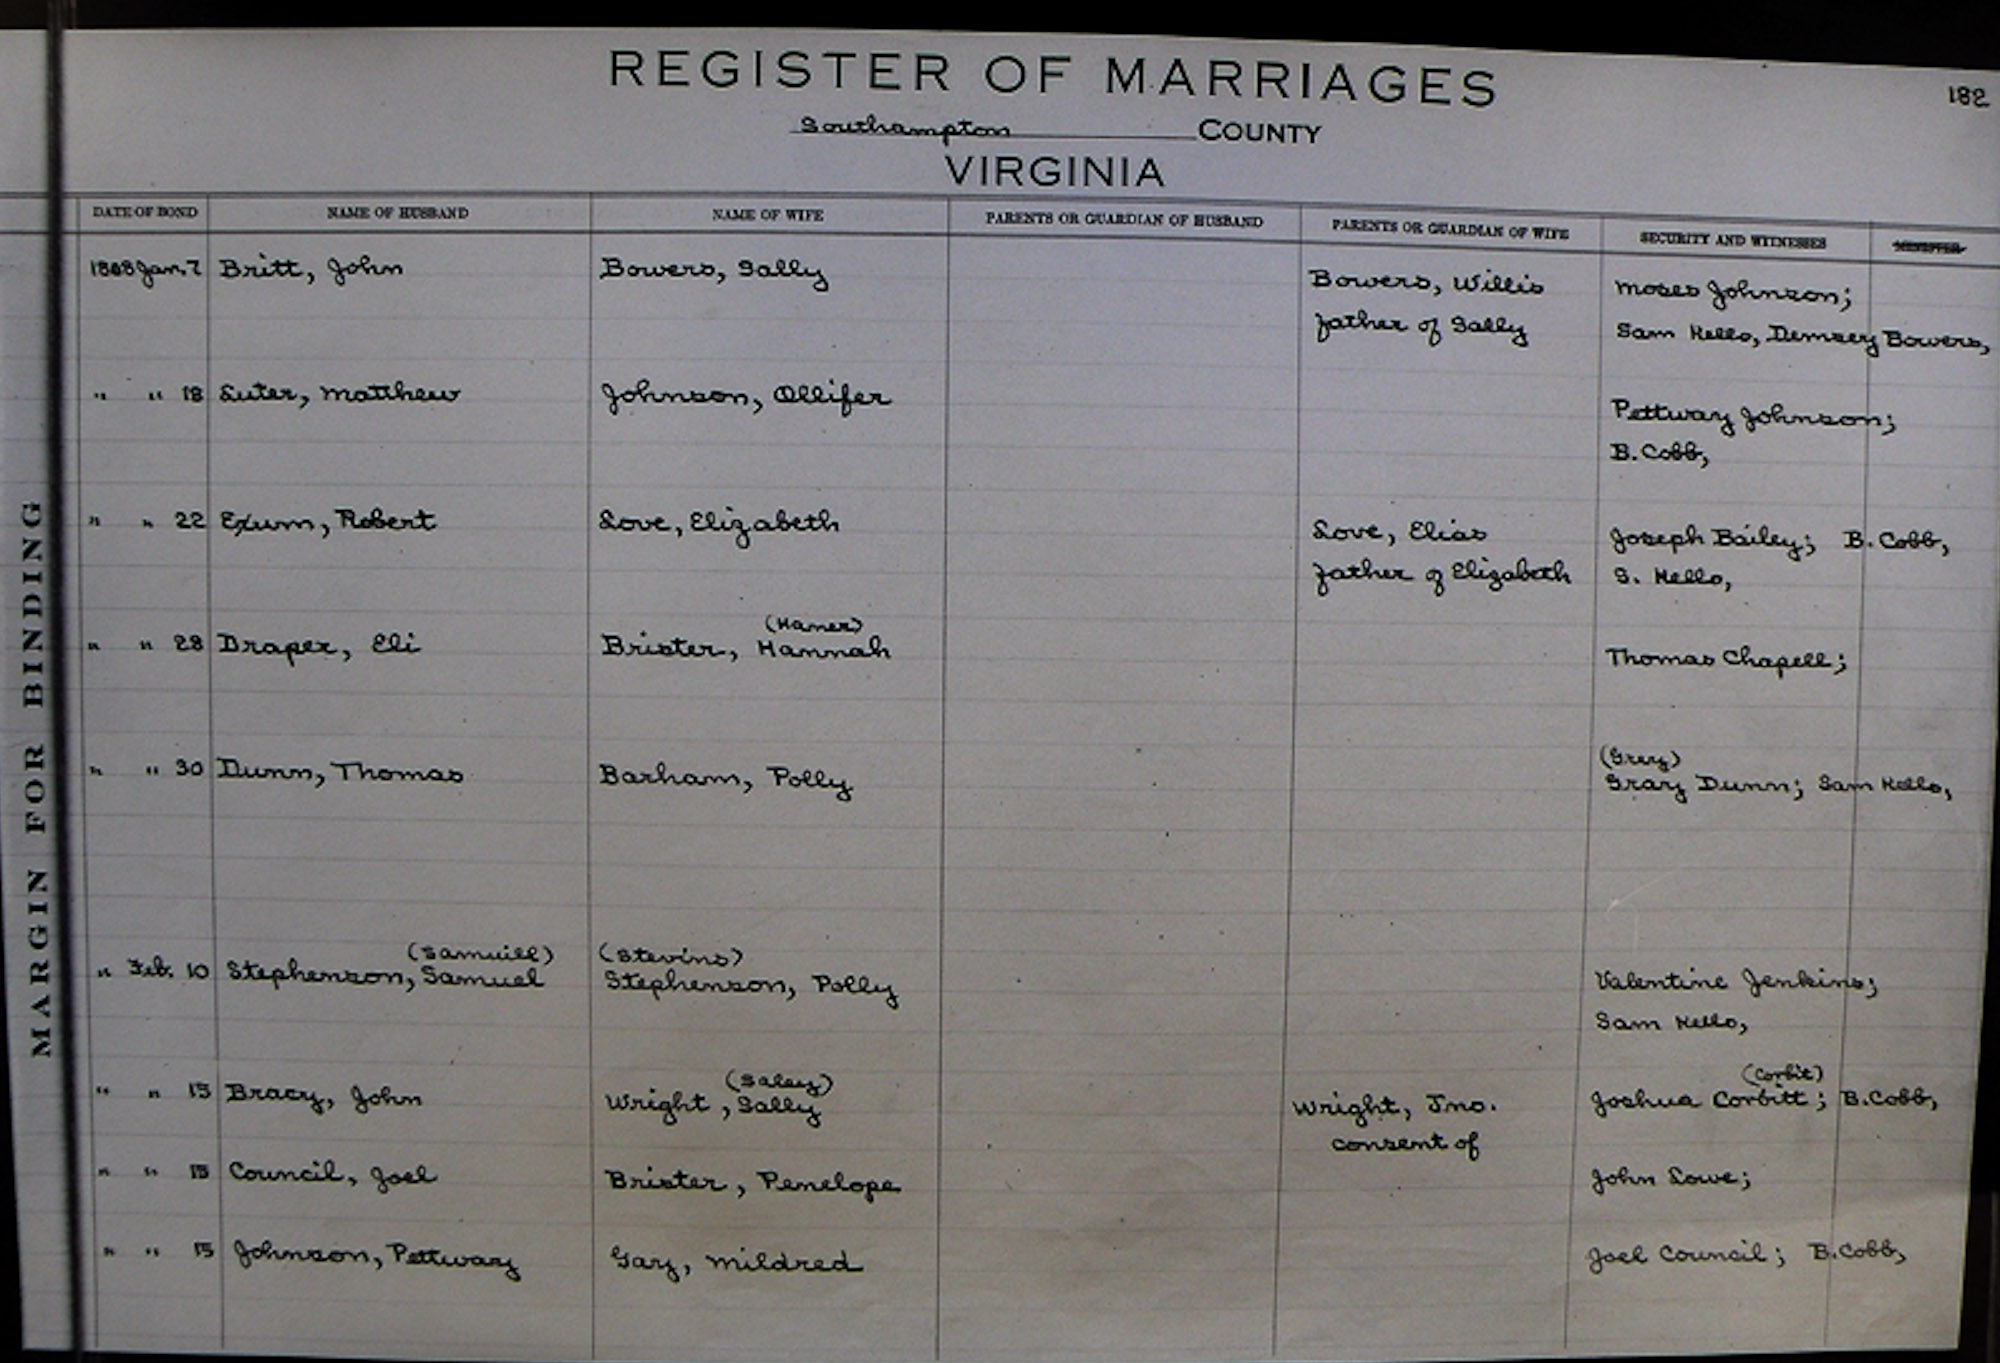 REGISTER OF MARRIAGES
182
Southampton COUNTY
VIRGINIA
DATE OF BOND NAME OF HUSBAND NAME OF WIFE PARENTS OR GUARDIAN OF HUSBAND PARENTS OR GUARDIAN OF WIFE SECURITY AND WITNESSES MINISTER
1808 Jan. 7 Britt, John Bowers, Sally Bowers, Willis Moses Johnson;
father of Sally Sam Kello, Demsey Bowers,
" " 18 Luter, Matthew Johnson, Ollifer Pettway Johnson;
B. Cobb,
" " 22 Exum, Robert Love, Elizabeth Love, Elias Joseph Bailey; B. Cobb,
father of Elizabeth S. Kello,
(Hamer)
" " 28 Draper, Eli Brister, Hannah Thomas Chapell;
(Grey)
" " 30 Dunn, Thomas Barham, Polly Gray Dunn; Sam Kello,
(Samuill) (Stevins)
" Feb. 10 Stephenson, Samuel Stephenson, Polly Valentine Jenkins;
Sam Kello,
(Saley) (Corbit)
" " 15 Bracy, John Wright, Sally Wright, Jno. Joshua Corbitt; B. Cobb,
consent of
" " 15 Council, Joel Brister, Penelope John Lowe;
" " 15 Johnson, Pettway Gary, Mildred Joel Council; B. Cobb,
MARGIN FOR BINDING